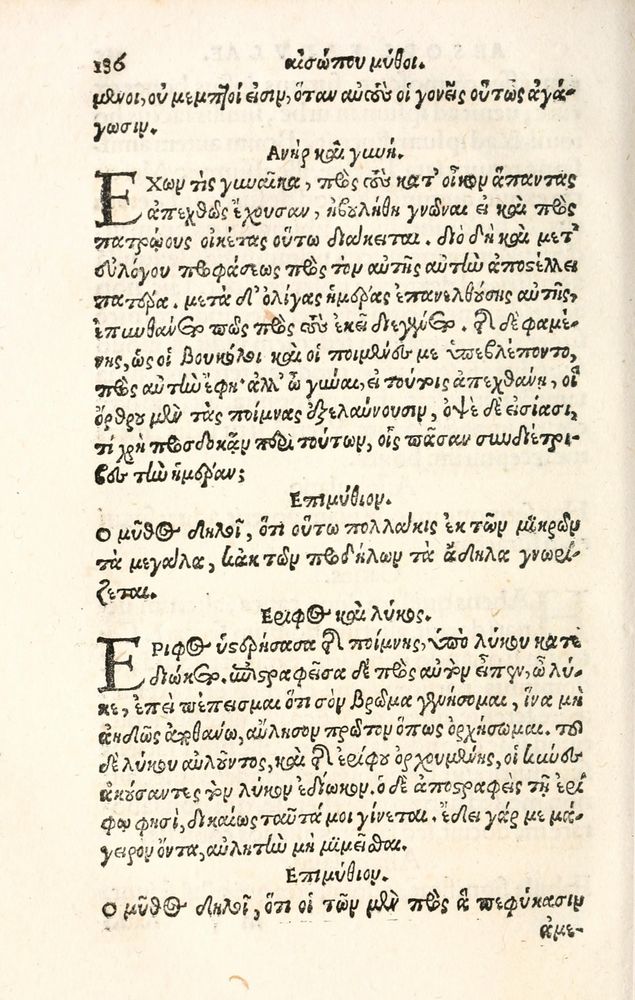 136 αἰσώπου μῦθοι.
μενοι, οὐ μεμπτοί εἰσιν, ὅταν αὐτοὺς οἱ γονεῖς οὕτως ἀγά-
γωσιν.
Ανὴρ καὶ γυνή.
ΕΧων τὶς γυναῖκα, πρὸς τοὺς κατ' οἶκον ἅπαντας
ἀπεχθῶς ἔχουσαν, ἠβουλήθη γνῶναι εἰ καὶ πρὸς
πατρῴους οἰκέτας οὕτω διάκειται. διὸ δὴ καὶ μετ'
εὐλόγου προφάσεως πρὸς τὸν αὐτῆς αὐτὴν ἀποστέλλει
πατέρα. μετὰ δ' ὀλίγας ἡμέρας ἐπανελθούσης αὐτῆς,
ἐπυνθάνετο πῶς πρὸς τοὺς ἐκεῖ διεγένετο. τῆς δὲ φαμέ-
νης, ὡς οἱ βουκόλοι καὶ οἱ ποιμένες με ὑπεβλέποντο,
πρὸς αὐτὴν ἔφη· ἀλλ' ὦ γύναι, εἰ τούτοις ἀπεχθάνῃ, οἳ
ὄρθρου μὲν τὰς ποίμνας ἐξελαύνουσιν, ὀψὲ δὲ εἰσίασι,
τί χρὴ προσδοκᾶν περὶ τούτων, οἷς πᾶσαν συνδιέτρι-
βες τὴν ἡμέραν;
Επιμύθιον.
Ο μῦθος δηλοῖ, ὅτι οὕτω πολλάκις ἐκ τῶν μικρῶν
τὰ μεγάλα, κἀκ τῶν προδήλων τὰ ἄδηλα γνωρί-
ζεται.
Εριφος καὶ λύκος.
ΕΡιφος ὑστερήσασα τῆς ποίμνης, ὑπὸ λύκου κατε
διώκετο. ἐπιστραφεῖσα δὲ πρὸς αὐτὸν εἶπεν, ὦ λύ-
κε, ἐπεὶ πέπεισμαι ὅτι σὸν βρῶμα γενήσομαι, ἵνα μὴ
ἀηδῶς ἀποθάνω, αὔλησον πρῶτον ὅπως ὀρχήσωμαι. τοῦ
δὲ λύκου αὐλοῦντος, καὶ τῆς ἐρίφου ὀρχουμένης, οἱ κύνες
ἀκούσαντες τὸν λύκον ἐδίωκον. ὁ δὲ ἀποστραφεὶς τῇ ἐρί
φῳ φησὶ, δικαίως ταῦτά μοι γίνεται. ἔδει γάρ με μά-
γειρον ὄντα, αὐλητὴν μὴ μιμεῖσθαι.
Επιμύθιον.
Ο μῦθος δηλοῖ, ὅτι οἱ τῶν μὲν πρὸς ἃ πεφύκασιν
ἀμε-